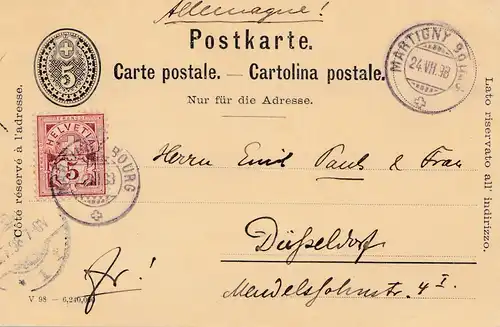 Allemagne!
Postkarte.
Carte postale. — Cartolina postale.
Nur für die Adresse.
5
MARTIGNY BOURG
24.VII.98
Côté réservé à l'adresse.
Lato riservato all' indirizzo.
HELVETIA
5
BOURG
Herrn Emil Pauls & Frau
Düsseldorf
Mendelssohnstr. 4 I.
Fr!
V. 98 — 6,240,000